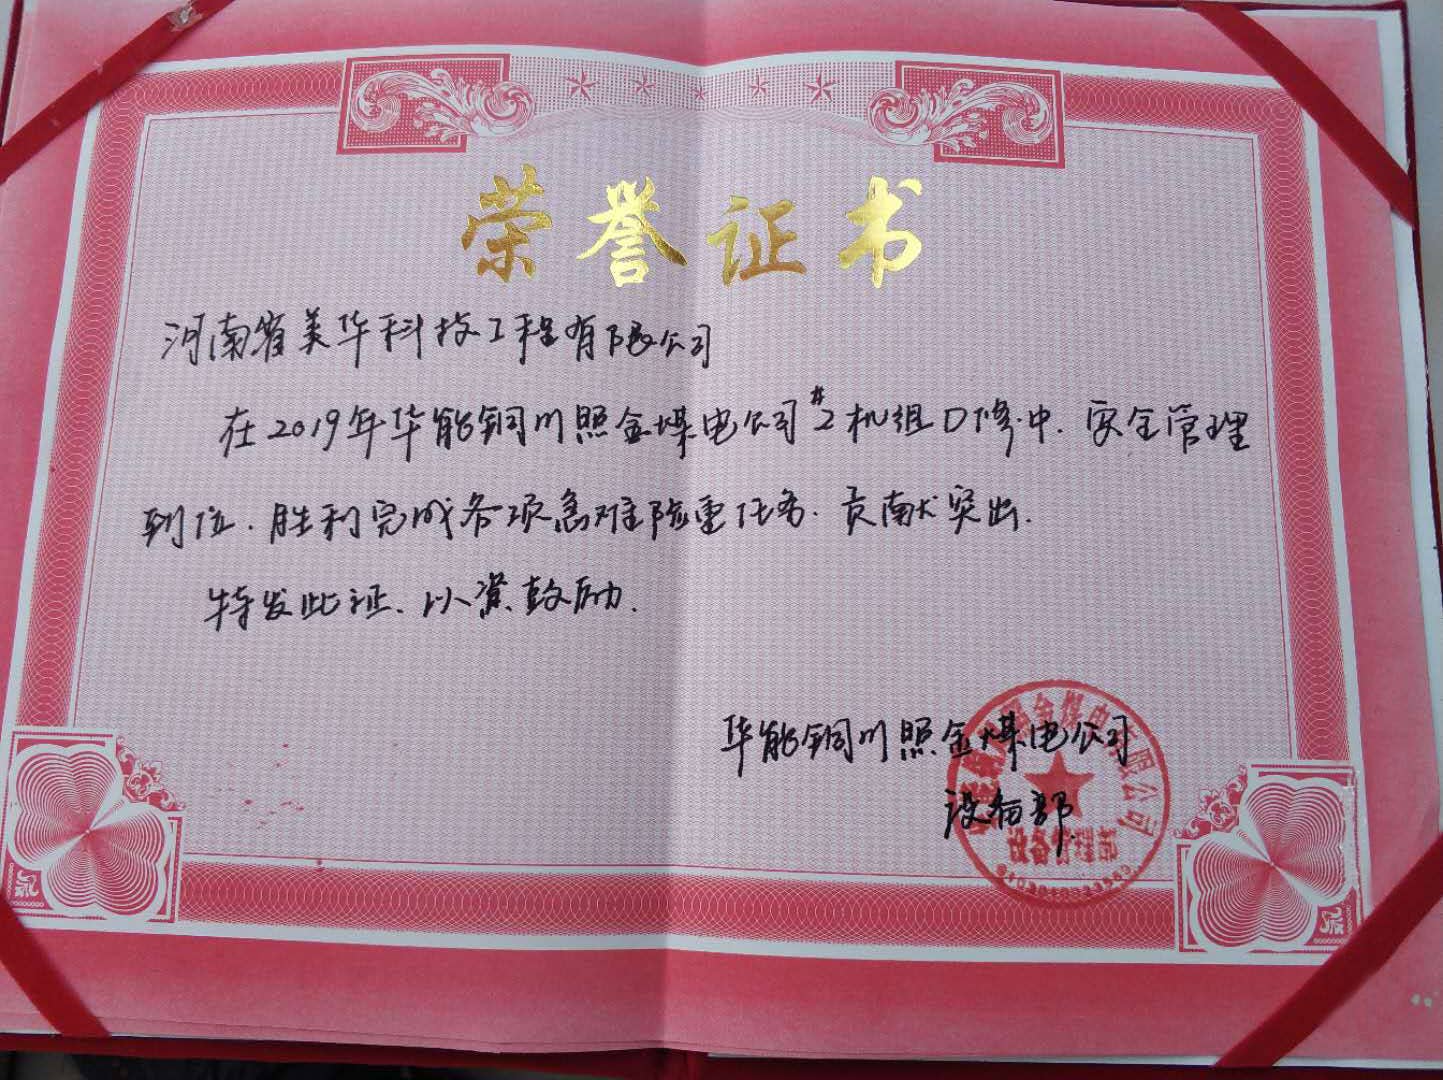 荣誉证书
河南省美华科技工程有限公司
在2019年华能铜川照金煤电公司#2机组D修中.安全管理
到位.胜利完成各项急难险重任务.贡献突出.
特发此证、以资鼓励.
华能铜川照金煤电公司
设备部
金煤电有限公司
设备管理部